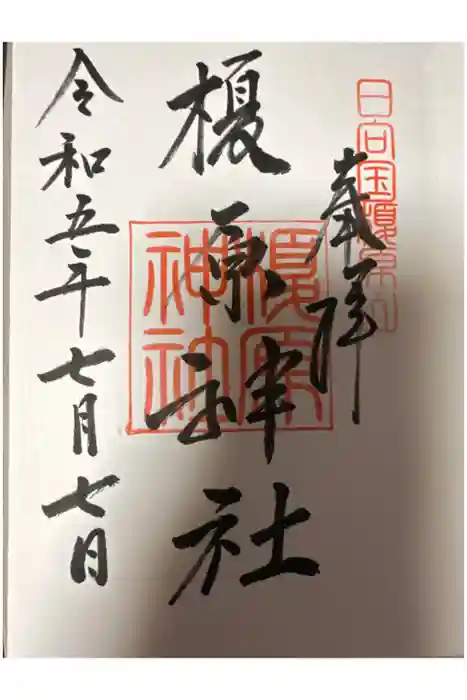 日向国榎原鎮
奉拝
榎原神社
榎原
神社
令和五年七月七日